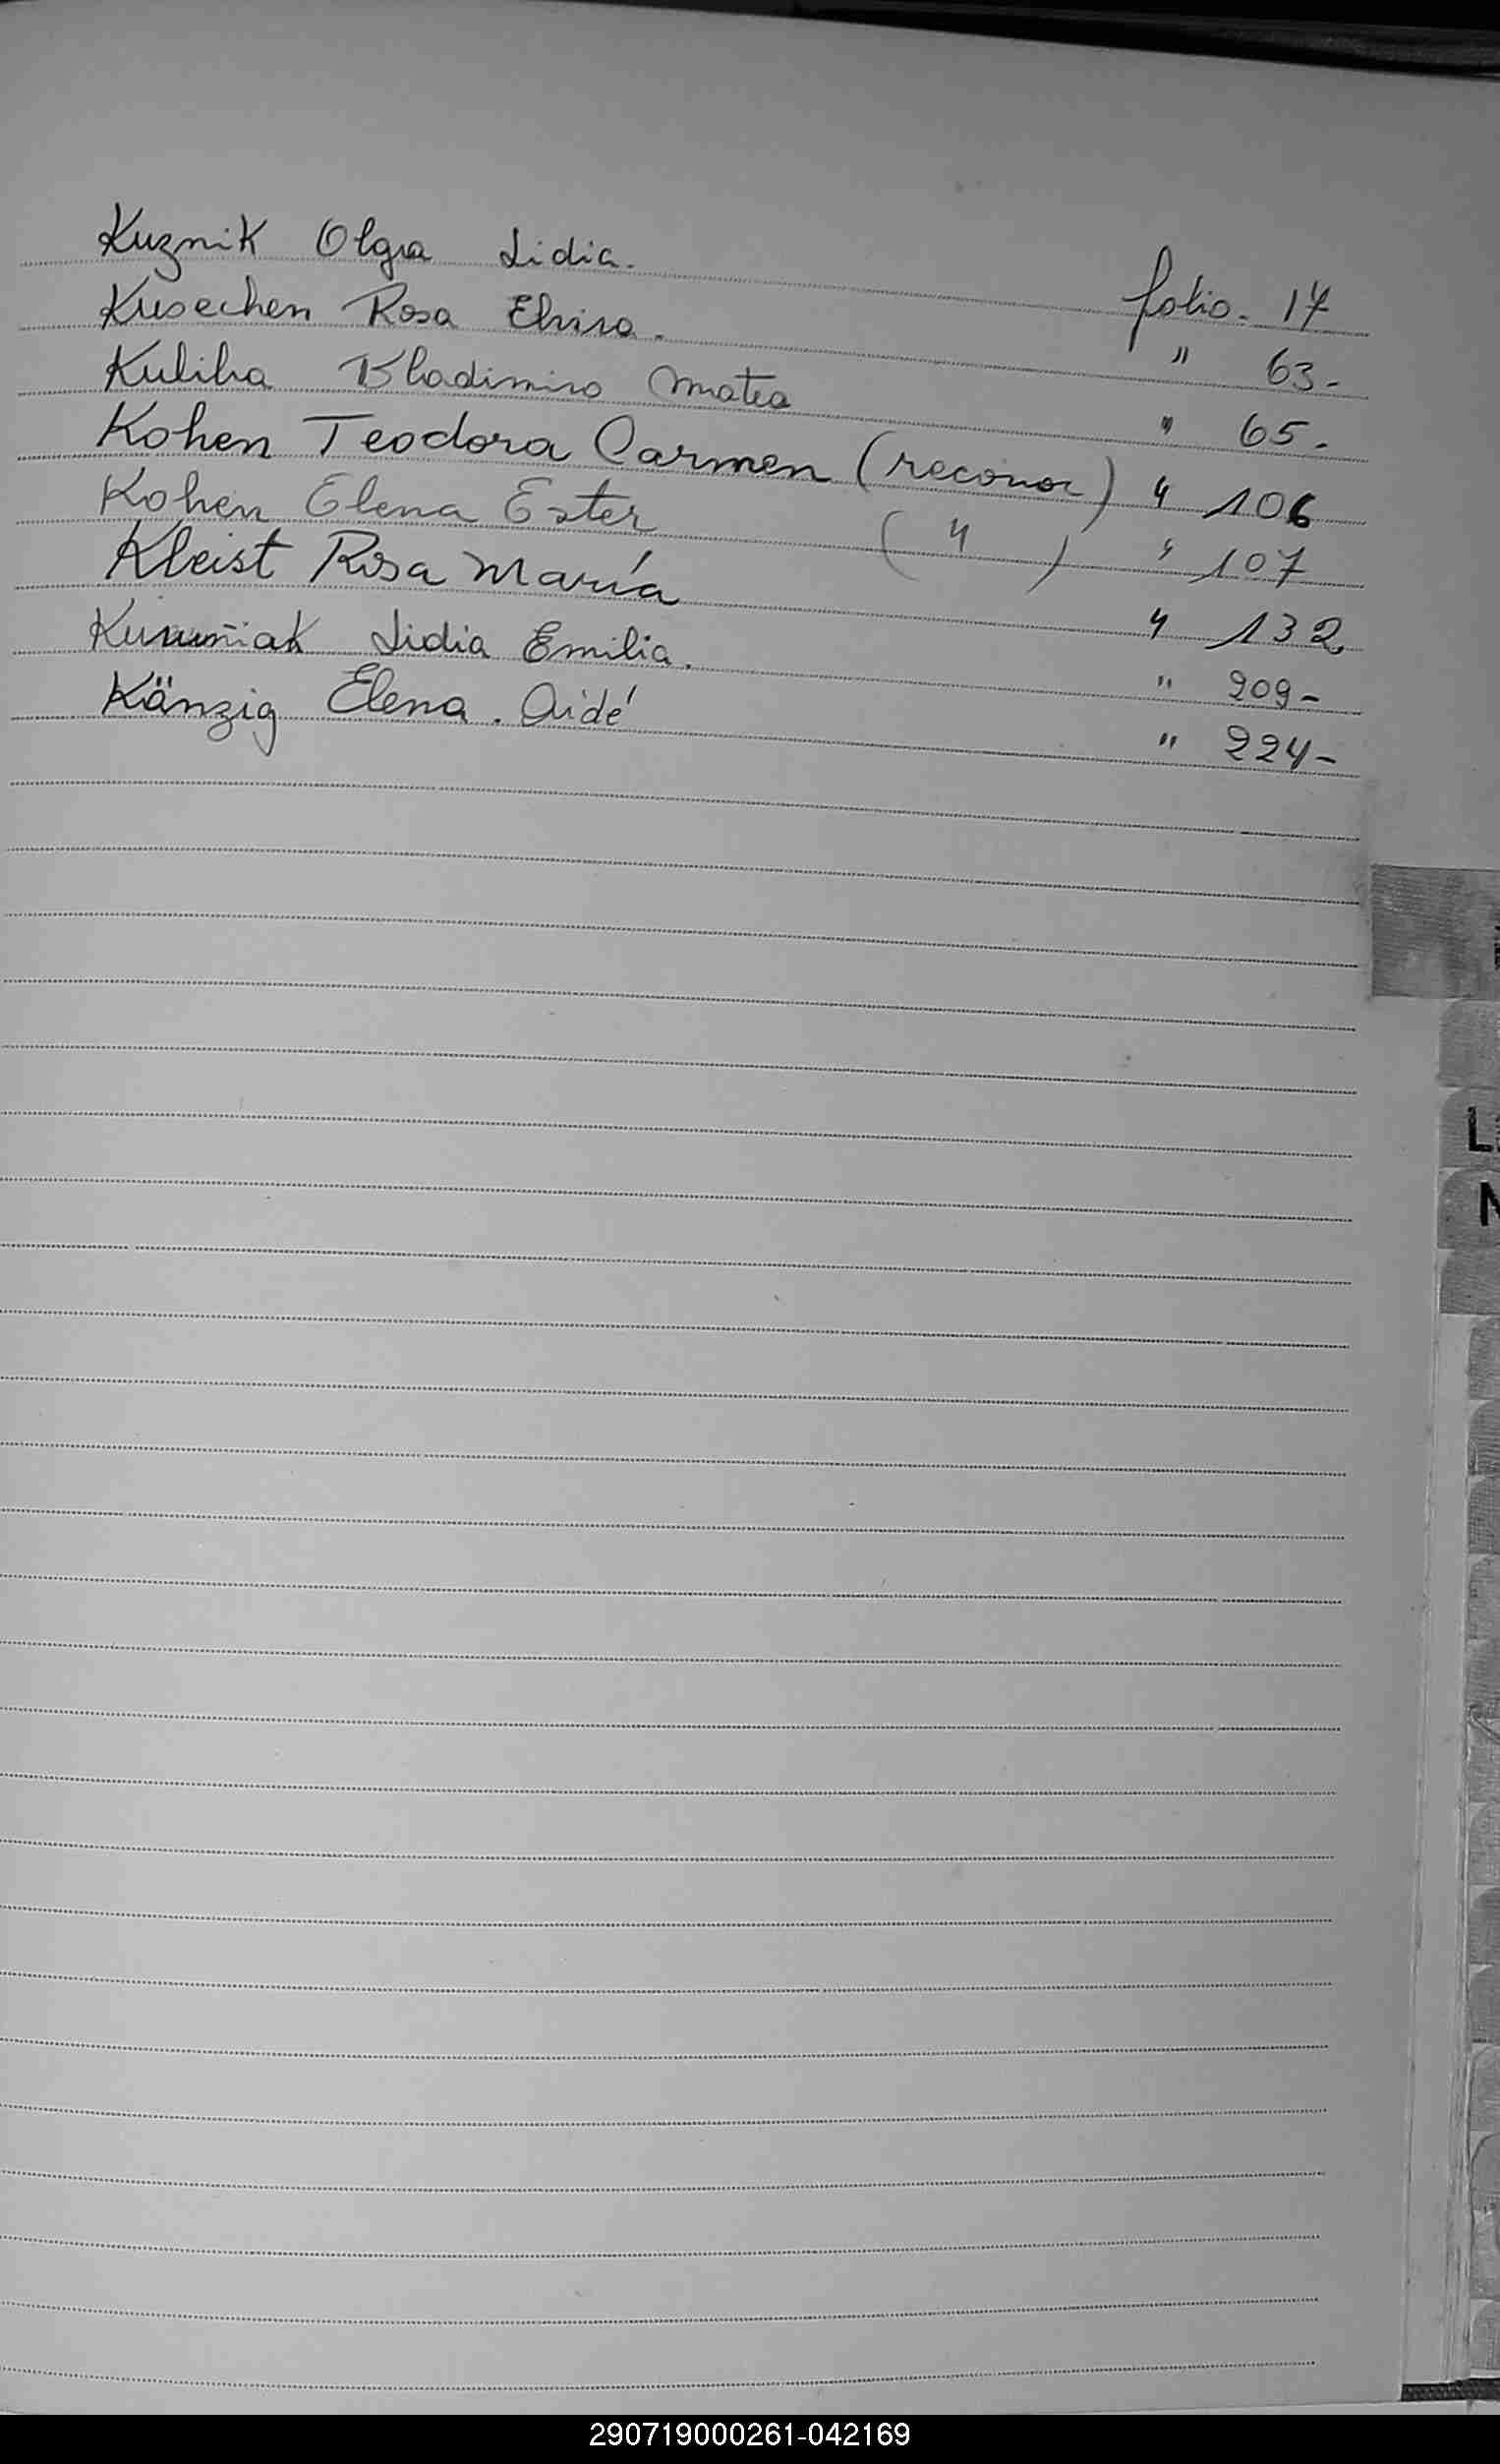 Kuznik Olga Lidia. folio. 17
Kusechen Rosa Elvira. " 63-
Kuliha Bladimiro Mateo " 65-
Kohen Teodora Carmen (reconoc) " 106
Kohen Elena Ester ( " ) " 107
Kleist Rosa María " 132
Lidia Emilia. " 209-
Känzig Elena. Aidé " 224-
L
N
290719000261-042169